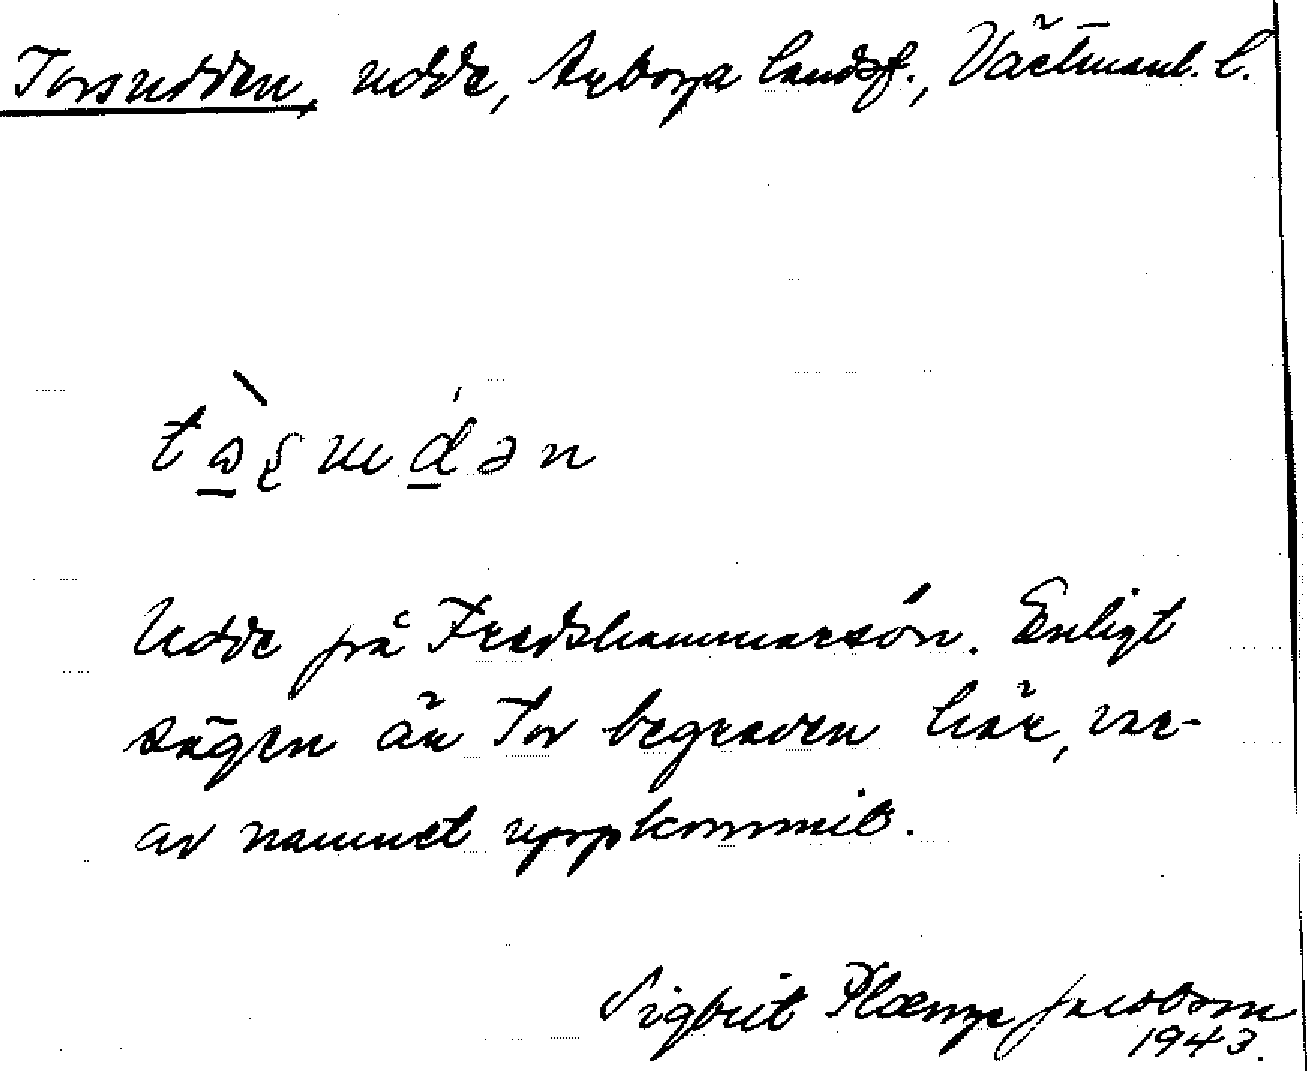 Torsudden, udde, Arboga landsf., Västmanl. l.
Udde på Fredshammarsön. Enligt
sägen är Tor begraven här, var-
av namnet uppkommit.
Sigbrit Plænge Jacobson
1943.